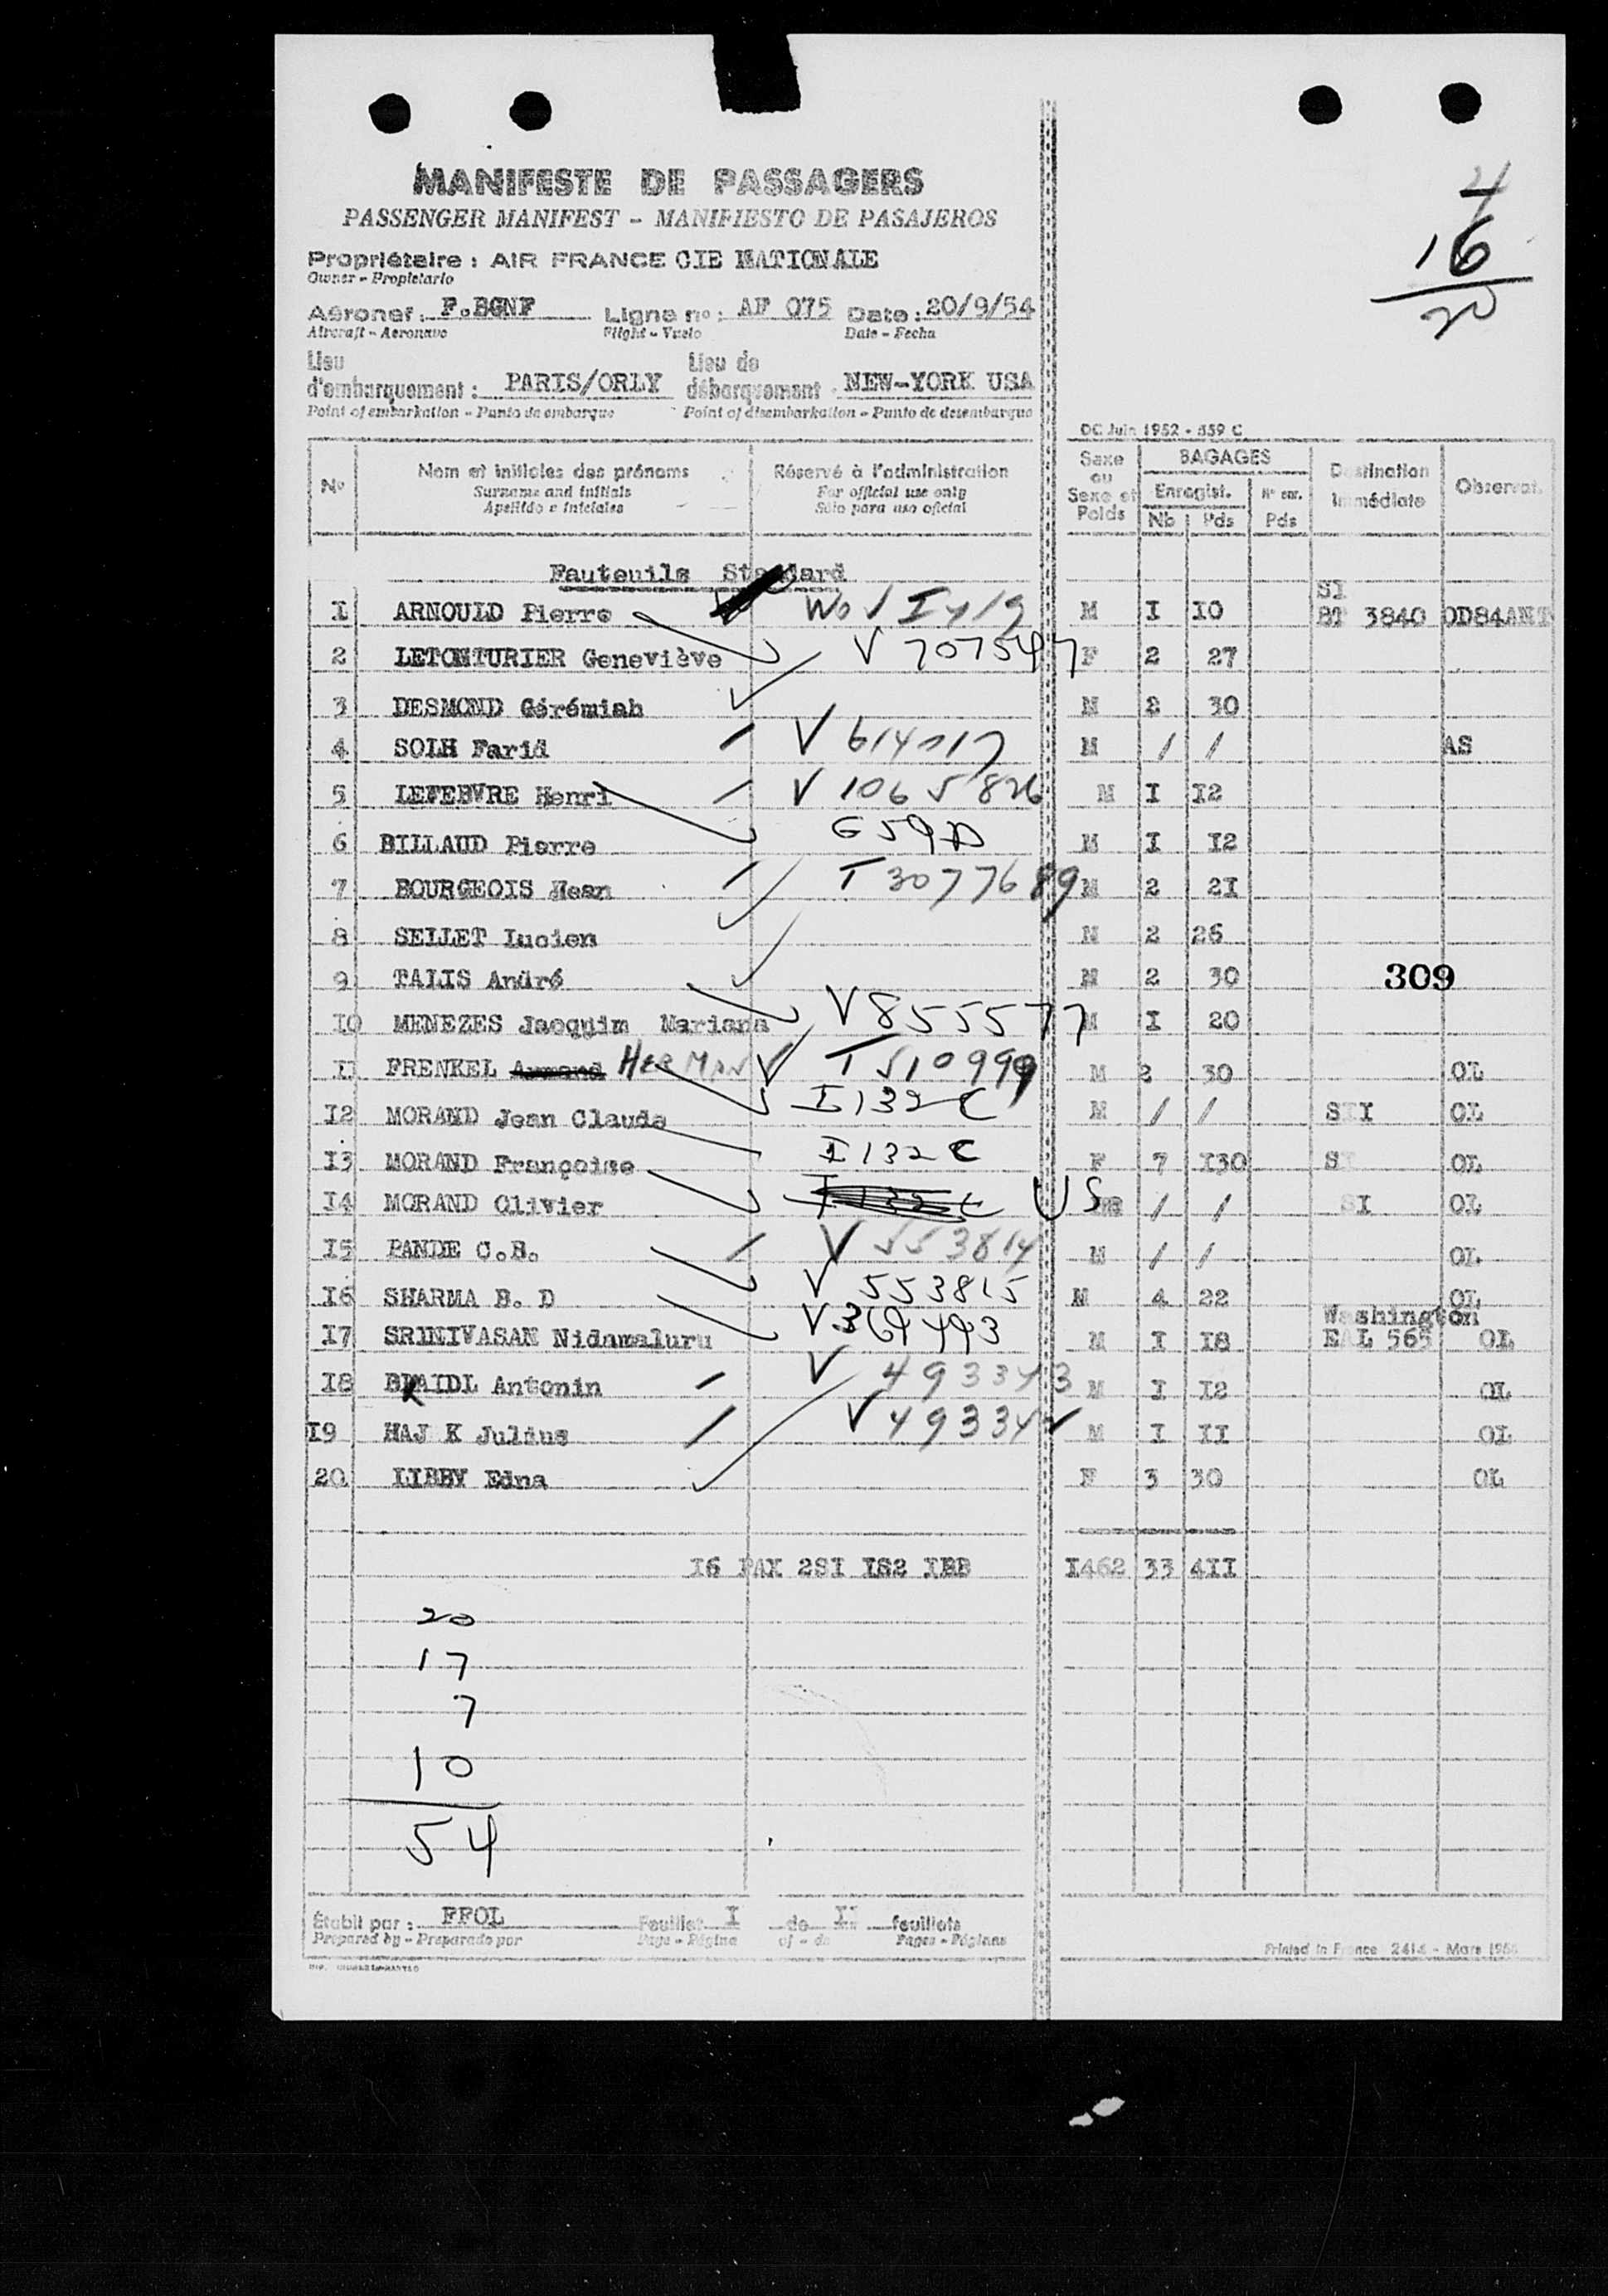 4
16
20
MANIFESTE DE PASSAGERS
PASSENGER MANIFEST - MANIFIESTO DE PASAJEROS
Propriétaire : AIR FRANCE CIE NATIONALE
Owner - Propietario
Aéronef : F.BGNF Ligne no : AF 075 Date : 20/9/54
Aircraft - Aeronave Flight - Vuelo Date - Fecha
Lieu d'embarquement : PARIS/ORLY Lieu de débarquement : NEW-YORK USA
Point of embarkation - Punto de embarque Point of disembarkation - Punto de desembarque
DC Juin 1952 - 859 C
No Nom et initiales des prénoms Réservé à l'administration Sexe ou Sexe et Poids BAGAGES Destination Immédiate Observat.
Surname and initials For official use only Enregist. No enr.
Apellido e iniciales Sólo para uso oficial Nb Pds Pds
Fauteuils Standard
SI
I ARNOULD Pierre M I IO BT 3840 OD84ANT
2 LETONTURIER Geneviève V 707547 F 2 27
3 DESMOND Gérémiah M 2 30
4 SOLH Farid V 614017 M / / AS
5 LEFEBVRE Henri V 1065826 M I I2
6 BILLAUD Pierre M I I2
7 BOURGEOIS Hean T 3077689 M 2 2I
8 SELLET Lucien M 2 26
9 TALIS André M 2 30
309
IO MENEZES Jaoquim Mariana V855577 M I 20
II FRENKEL Armand HERMAN T 510999 M 2 30 OL
I2 MORAND Jean Claude I132C M / / SII OL
I3 MORAND Françoise I132C F 7 I30 SI OL
I4 MORAND Olivier I132C US / / SI OL
I5 PANDE C.B. V 553814 M / / OL
I6 SHARMA B. D V 553815 M 4 22 OL
Washington
I7 SRINIVASAN Nidamaluru V369493 M I I8 EAL 565 OL
I8 BRAIDL Antonin V 493343 M I I2 OL
I9 HAJ K Julius V 493342 M I II OL
20 LIBBY Edna F 3 30 OL
I6 PAX 2SI IS2 IBB I462 33 4II
20
17
7
10
54
Établi par : FFOL Feuillet I de II feuillets
Prepared by - Preparado por Page - Página of - de Pages - Páginas
Printed in France 2414 - Mars